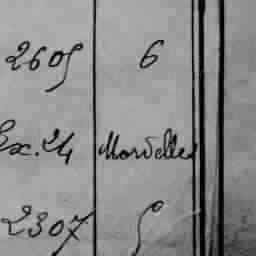 2605 6
Ex. 24 Mordelles
2307 5